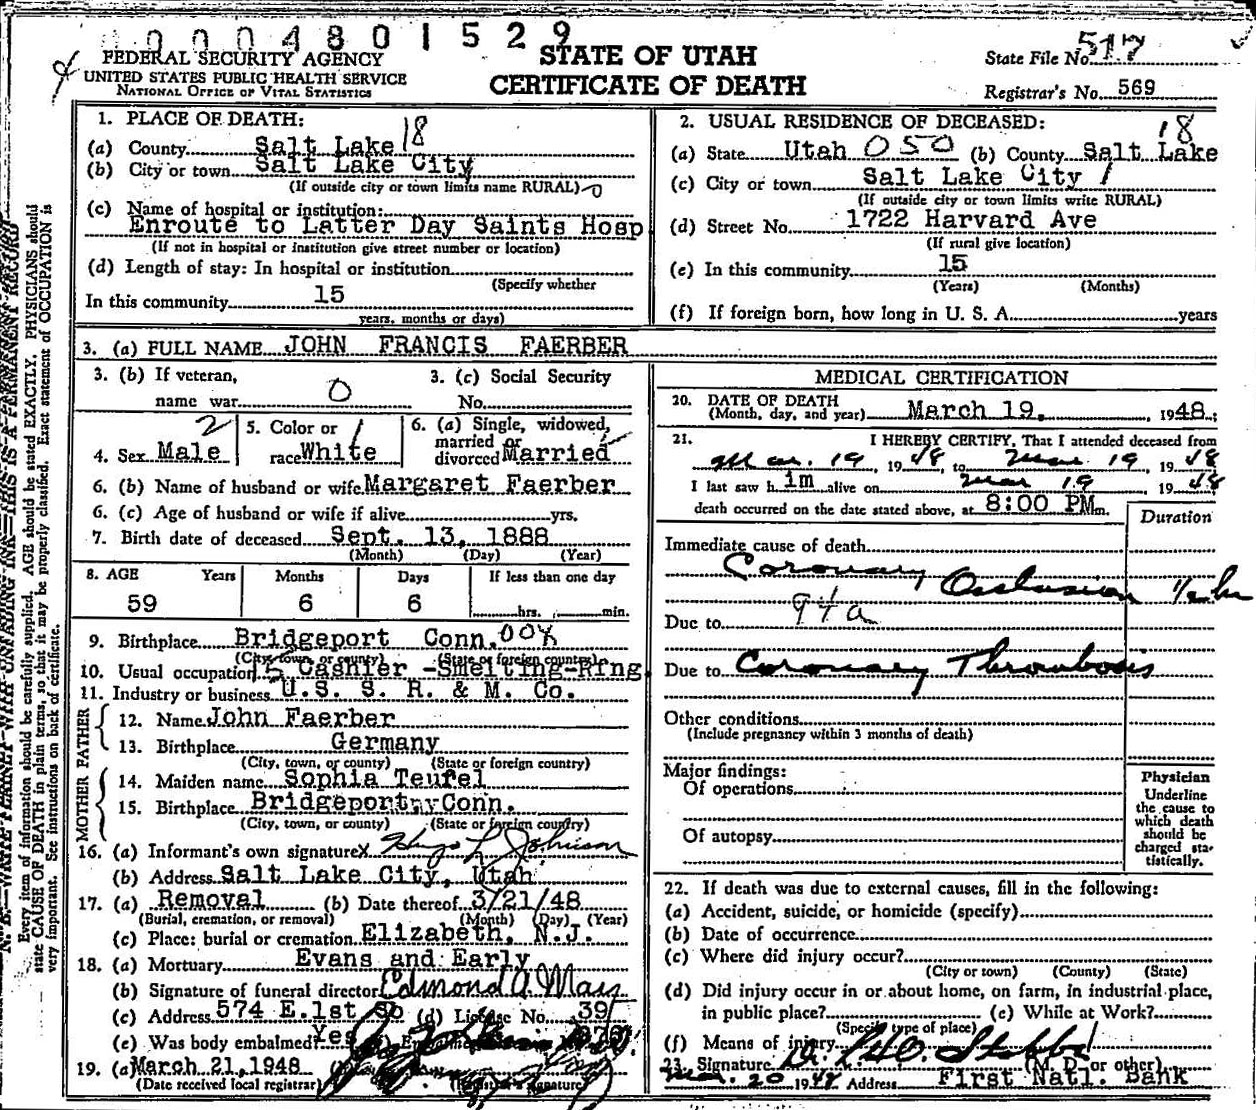 0004801529
FEDERAL SECURITY AGENCY
UNITED STATES PUBLIC HEALTH SERVICE
NATIONAL OFFICE OF VITAL STATISTICS
STATE OF UTAH
CERTIFICATE OF DEATH
State File No. 517
Registrar's No. 569
1. PLACE OF DEATH:
(a) County Salt Lake 18
(b) City or town Salt Lake City
(If outside city or town limits name RURAL) 0
(c) Name of hospital or institution:
Enroute to Latter Day Saints Hosp
(If not in hospital or institution give street number or location)
(d) Length of stay: In hospital or institution
(Specify whether
In this community 15
years, months or days)
2. USUAL RESIDENCE OF DECEASED:
18
(a) State Utah 050 (b) County Salt Lake
(c) City or town Salt Lake City 1
(If outside city or town limits write RURAL)
(d) Street No. 1722 Harvard Ave
(If rural give location)
(e) In this community 15
(Years) (Months)
(f) If foreign born, how long in U. S. A. years
3. (a) FULL NAME JOHN FRANCIS FAERBER
3. (b) If veteran,
name war 0
3. (c) Social Security
No.
2
4. Sex Male
5. Color or 1
race White
6. (a) Single, widowed,
married or
divorced Married
6. (b) Name of husband or wife Margaret Faerber
6. (c) Age of husband or wife if alive yrs.
7. Birth date of deceased Sept. 13, 1888
(Month) (Day) (Year)
8. AGE Years Months Days If less than one day
59 6 6 hrs. min.
9. Birthplace Bridgeport Conn. 00X
(City, town, or county) (State or foreign country)
10. Usual occupation 15 Cashier -Smelting-Ring.
11. Industry or business U.S. S. R. & M. Co.
FATHER
12. Name John Faerber
13. Birthplace Germany
(City, town, or county) (State or foreign country)
MOTHER
14. Maiden name Sophia Teufel
15. Birthplace Bridgeport Conn.
(City, town, or county) (State or foreign country)
16. (a) Informant's own signature X Hugo L Johnson
(b) Address Salt Lake City, Utah
17. (a) Removal (b) Date thereof 3/21/48
(Burial, cremation, or removal) (Month) (Day) (Year)
(c) Place: burial or cremation Elizabeth, N.J.
18. (a) Mortuary Evans and Early
(b) Signature of funeral director Edmond A May
(c) Address 574 E.1st So (d) License No. 39
(e) Was body embalmed? Yes
19. (a) March 21, 1948
(Date received local registrar) (Registrar's signature)
MEDICAL CERTIFICATION
20. DATE OF DEATH
(Month, day, and year) March 19, 1948;
21. I HEREBY CERTIFY, That I attended deceased from
Mar. 19, 1948, to Mar 19 1948
I last saw him alive on Mar 19 1948
death occurred on the date stated above, at 8:00 PM m.
Duration
Immediate cause of death
Coronary Occlusion 1/2 hr
94a
Due to
Due to Coronary Thrombosis
Other conditions
(Include pregnancy within 3 months of death)
Major findings:
Of operations
Of autopsy
Physician
Underline
the cause to
which death
should be
charged sta-
tistically.
22. If death was due to external causes, fill in the following:
(a) Accident, suicide, or homicide (specify)
(b) Date of occurrence
(c) Where did injury occur?
(City or town) (County) (State)
(d) Did injury occur in or about home, on farm, in industrial place,
in public place? (e) While at Work?
(Specify type of place)
(f) Means of injury
23. Signature (M. D. or other)
Mar. 20 1948 Address First Natl. Bank
Every item of information should be carefully supplied. AGE should be stated EXACTLY. PHYSICIANS should
state CAUSE OF DEATH in plain terms, so that it may be properly classified. Exact statement of OCCUPATION is
very important. See instructions on back of certificate.